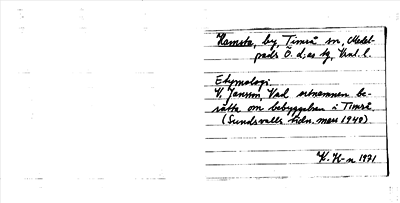 Hamsta, by, Timrå sn, Medel-
pads Ö. d:as tg, Vnl. l.
Etymologi.
V. Jansson, Vad ortnamnen be-
rätta om bebyggelsen i Timrå
(Sundsvalls tidn. mars 1940)
K. H-n 1971